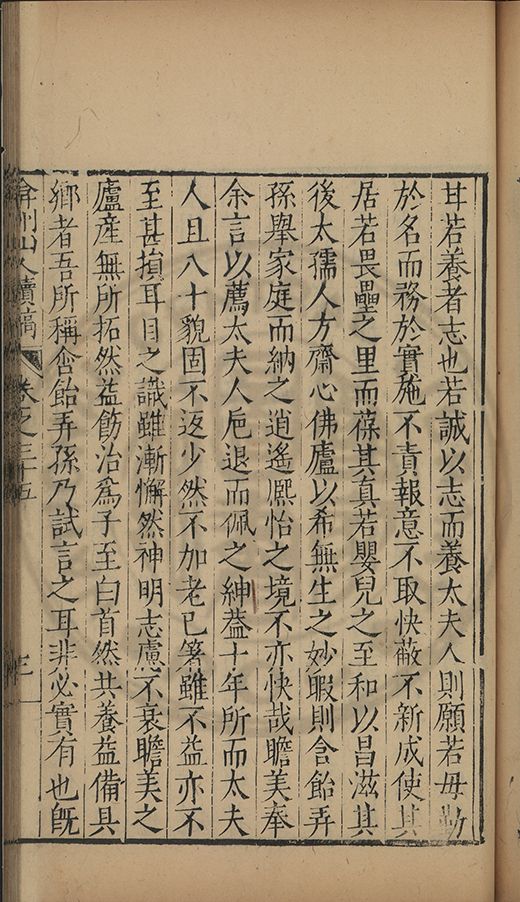 甘若養者志也若誠以志而養太夫人則願若毋勤
於名而務於實施不責報意不取快蔽不新成使其
居若畏壘之里而葆其真若嬰兒之至和以昌滋其
後太孺人方齋心佛廬以希無生之妙暇則含飴弄
孫舉家庭而納之逍遙熈怡之境不亦快哉瞻美奉
余言以薦太夫人巵退而佩之紳葢十年所而太夫
人且八十貌固不返少然不加老已箸雖不益亦不
至甚損耳目之識雖漸懈然神明志慮不衰瞻美之
廬産無所拓然益飭治爲子至白首然共養益備具
鄉者吾所稱含飴弄孫乃試言之耳非必實有也旣
弇州山人續稿 卷之三十五